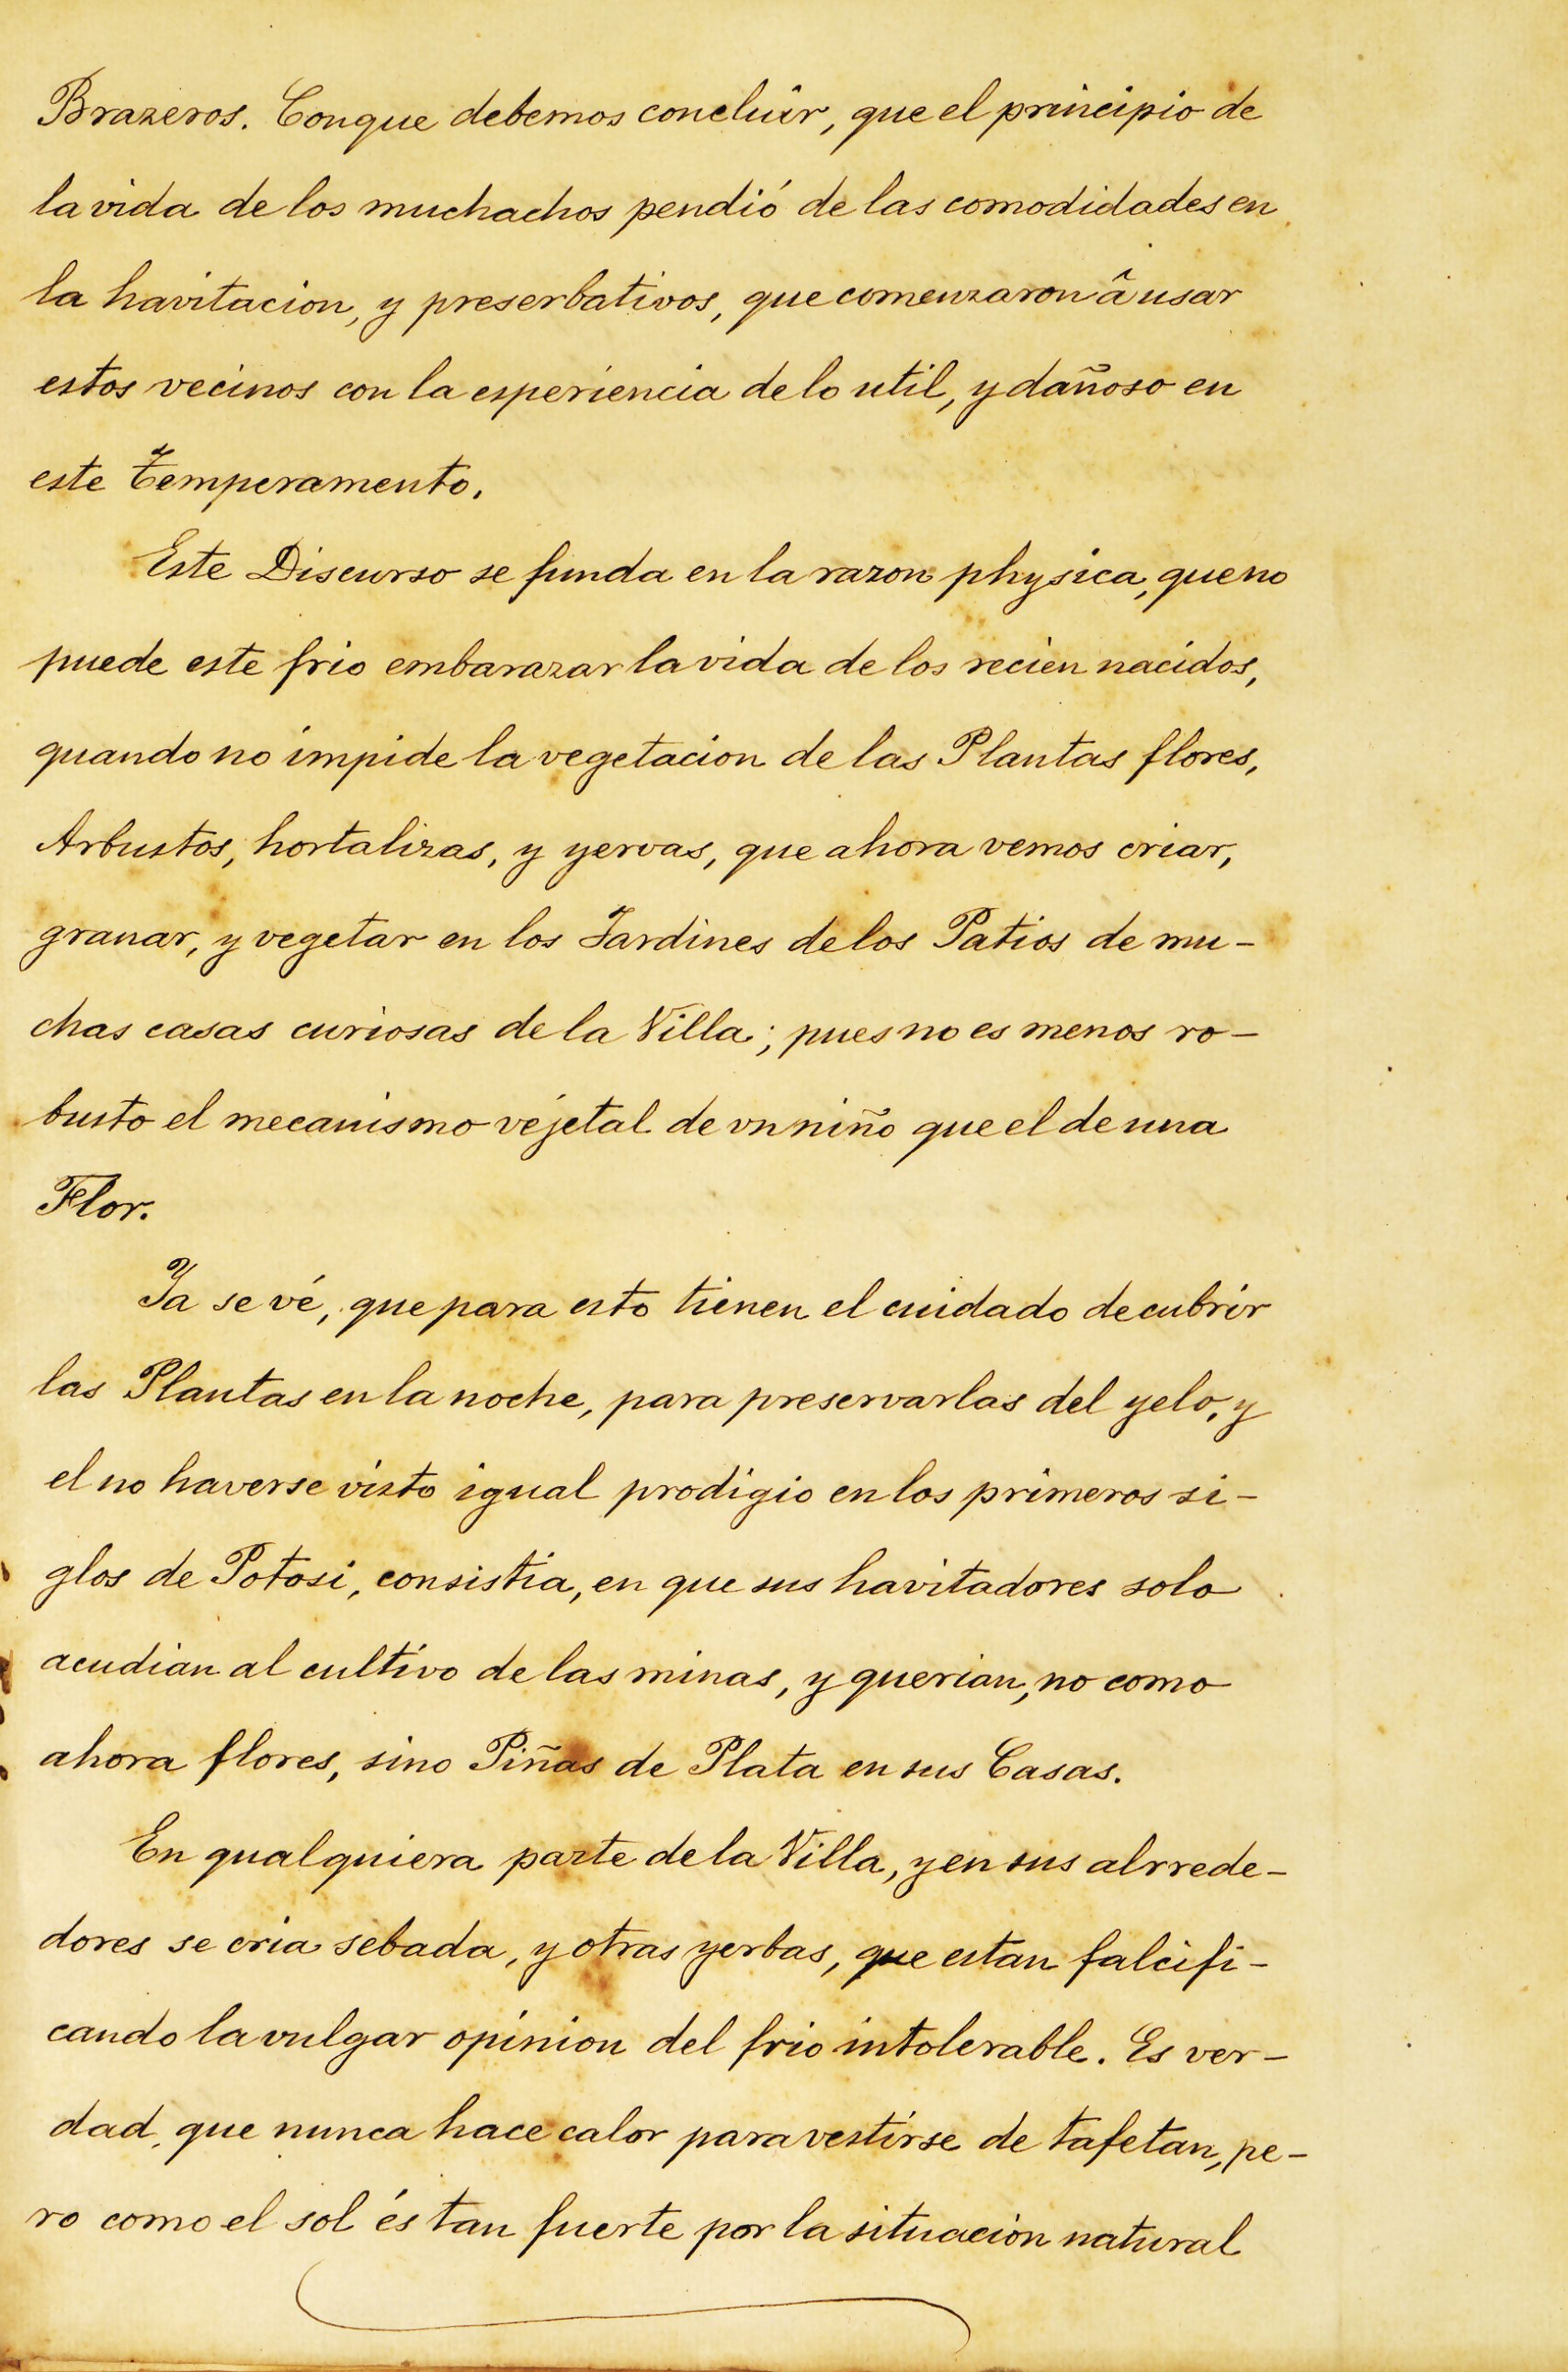 Brazeros. Conque debemos concluir, que el principio de
la vida de los muchachos pendió de las comodidades en
la havitacion, y preserbativos, que comenzaron â usar
estos vecinos con la esperiencia de lo util, y dañoso en
este Temperamento.
Este Discurso se funda en la razon physica, que no
puede este frio embarazar la vida de los recien nacidos,
quando no impide la vegetacion de las Plantas flores,
Arbustos, hortalizas, y yervas, que ahora vemos criar,
granar, y vegetar en los Jardines de los Patios de mu-
chas casas curiosas de la Villa; pues no es menos ro-
busto el mecanismo véjetal de vn niño que el de una
Flor.
Ya se vé, que para esto tienen el cuidado de cubrir
las Plantas en la noche, para preservarlas del yelo, y
el no haverse visto igual prodigio en los primeros si-
glos de Potosi, consistia, en que sus havitadores solo
acudian al cultivo de las minas, y querian, no como
ahora flores, sino Piñas de Plata en sus Casas.
En qualquiera parte de la Villa, y en sus alrrede-
dores se cria sebada, y otras yerbas, que estan falcifi-
cando la vulgar opinion del frio intolerable. Es ver-
dad, que nunca hace calor para vestirse de tafetan, pe-
ro como el sol és tan fuerte por la situacion natural